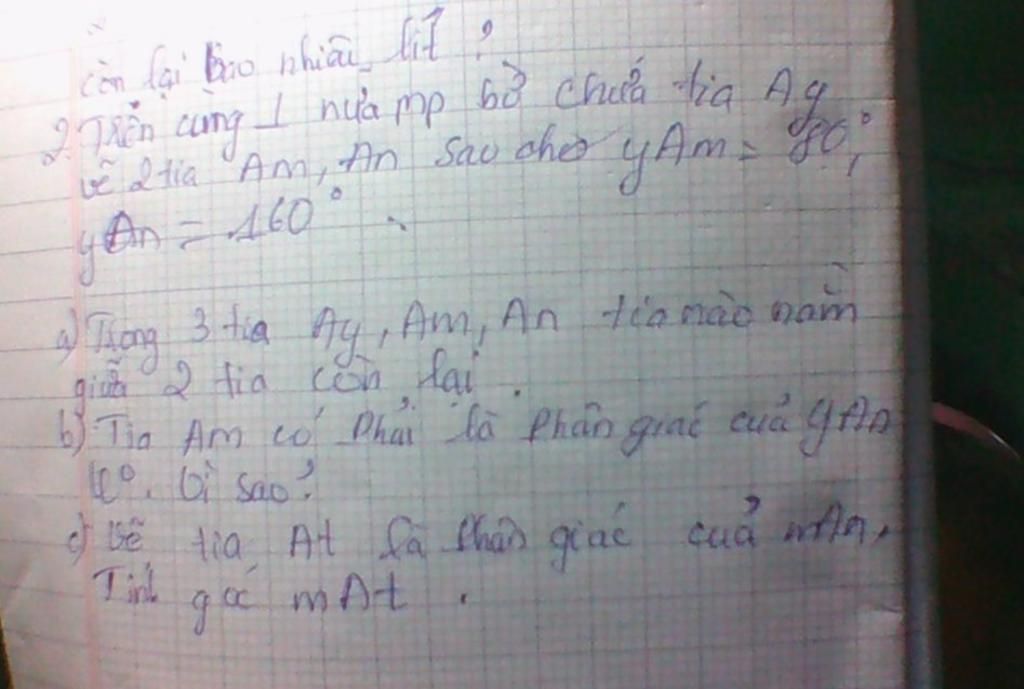 còn lại bao nhiêu lít ?
2. Trên cùng 1 nửa mp bờ chứa tia Ay
vẽ 2 tia Am, An sao cho yAm = 80°,
yAn = 160° .
a) Trong 3 tia Ay, Am, An tia nào nằm
giữa 2 tia còn lại .
b) Tia Am có phải là phân giác của yAn
k°. Vì sao ?
c) Vẽ tia At là phân giác của mAn,
Tính góc mAt .